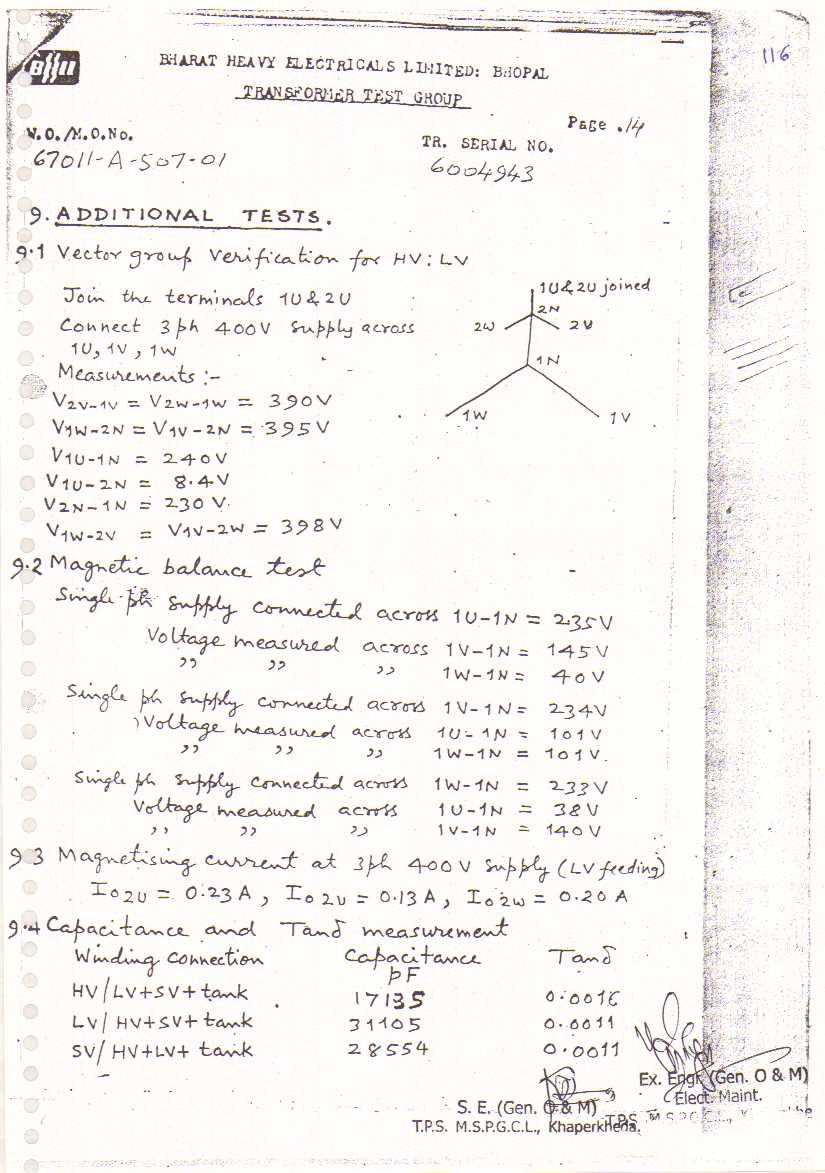 116
BHEL
BHARAT HEAVY ELECTRICALS LIMITED: BHOPAL
TRANSFORMER TEST GROUP
Page .14
W.O./M.O.No.
TR. SERIAL NO.
67011-A-507-01
6004943
9. ADDITIONAL TESTS.
9.1 Vector group verification for HV: LV
Join the terminals 1U & 2U
Connect 3 ph 400V supply across
1U, 1V, 1W
Measurements :-
V2V-1V = V2W-1W = 390V
V1W-2N = V1V-2N = 395V
V1U-1N = 240V
V1U-2N = 8.4V
V2N-1N = 230V.
V1W-2V = V1V-2W = 398V
1U & 2U joined
2N
2W
2V
1N
1W
1V
9.2 Magnetic balance test
Single ph supply connected across 1U-1N = 235V
Voltage measured across 1V-1N = 145V
,, ,, ,, 1W-1N = 40V
Single ph supply connected across 1V-1N = 234V
Voltage measured across 1U-1N = 101V
,, ,, ,, 1W-1N = 101V.
Single ph supply connected across 1W-1N = 233V
Voltage measured across 1U-1N = 38V
,, ,, ,, 1V-1N = 140V
9.3 Magnetising current at 3ph 400V supply (LV feeding)
Io2U = 0.23A, Io2V = 0.13A, Io2W = 0.20A
9.4 Capacitance and Tanδ measurement
Winding Connection Capacitance Tanδ
pF
HV/LV+SV+tank 17135
LV/HV+SV+tank 31105 0.0011
SV/HV+LV+tank 28554 0.0011
Ex. Engr. (Gen. O & M)
Elect. Maint.
S. E. (Gen. O & M)
T.P.S. M.S.P.G.C.L., Khaperkheda.
T.P.S. M.S.P.G.C.L.,